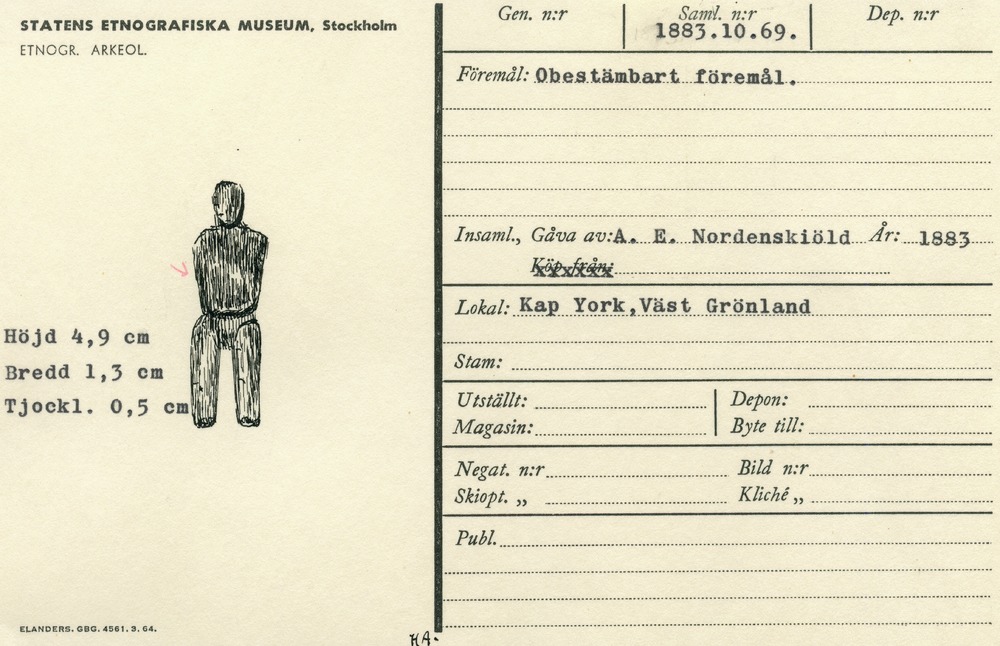 STATENS ETNOGRAFISKA MUSEUM, Stockholm
ETNOGR. ARKEOL.
Höjd 4,9 cm
Bredd 1,3 cm
Tjockl. 0,5 cm
ELANDERS. GBG. 4561. 3. 64.
HA.
Gen. n:r Saml. n:r Dep. n:r
1883.10.69.
Föremål: Obestämbart föremål.
Insaml., Gåva av: A. E. Nordenskiöld År: 1883
Köp från:
Lokal: Kap York, Väst Grönland
Stam:
Utställt: Depon:
Magasin: Byte till:
Negat. n:r Bild n:r
Skiopt. „ Kliché „
Publ.